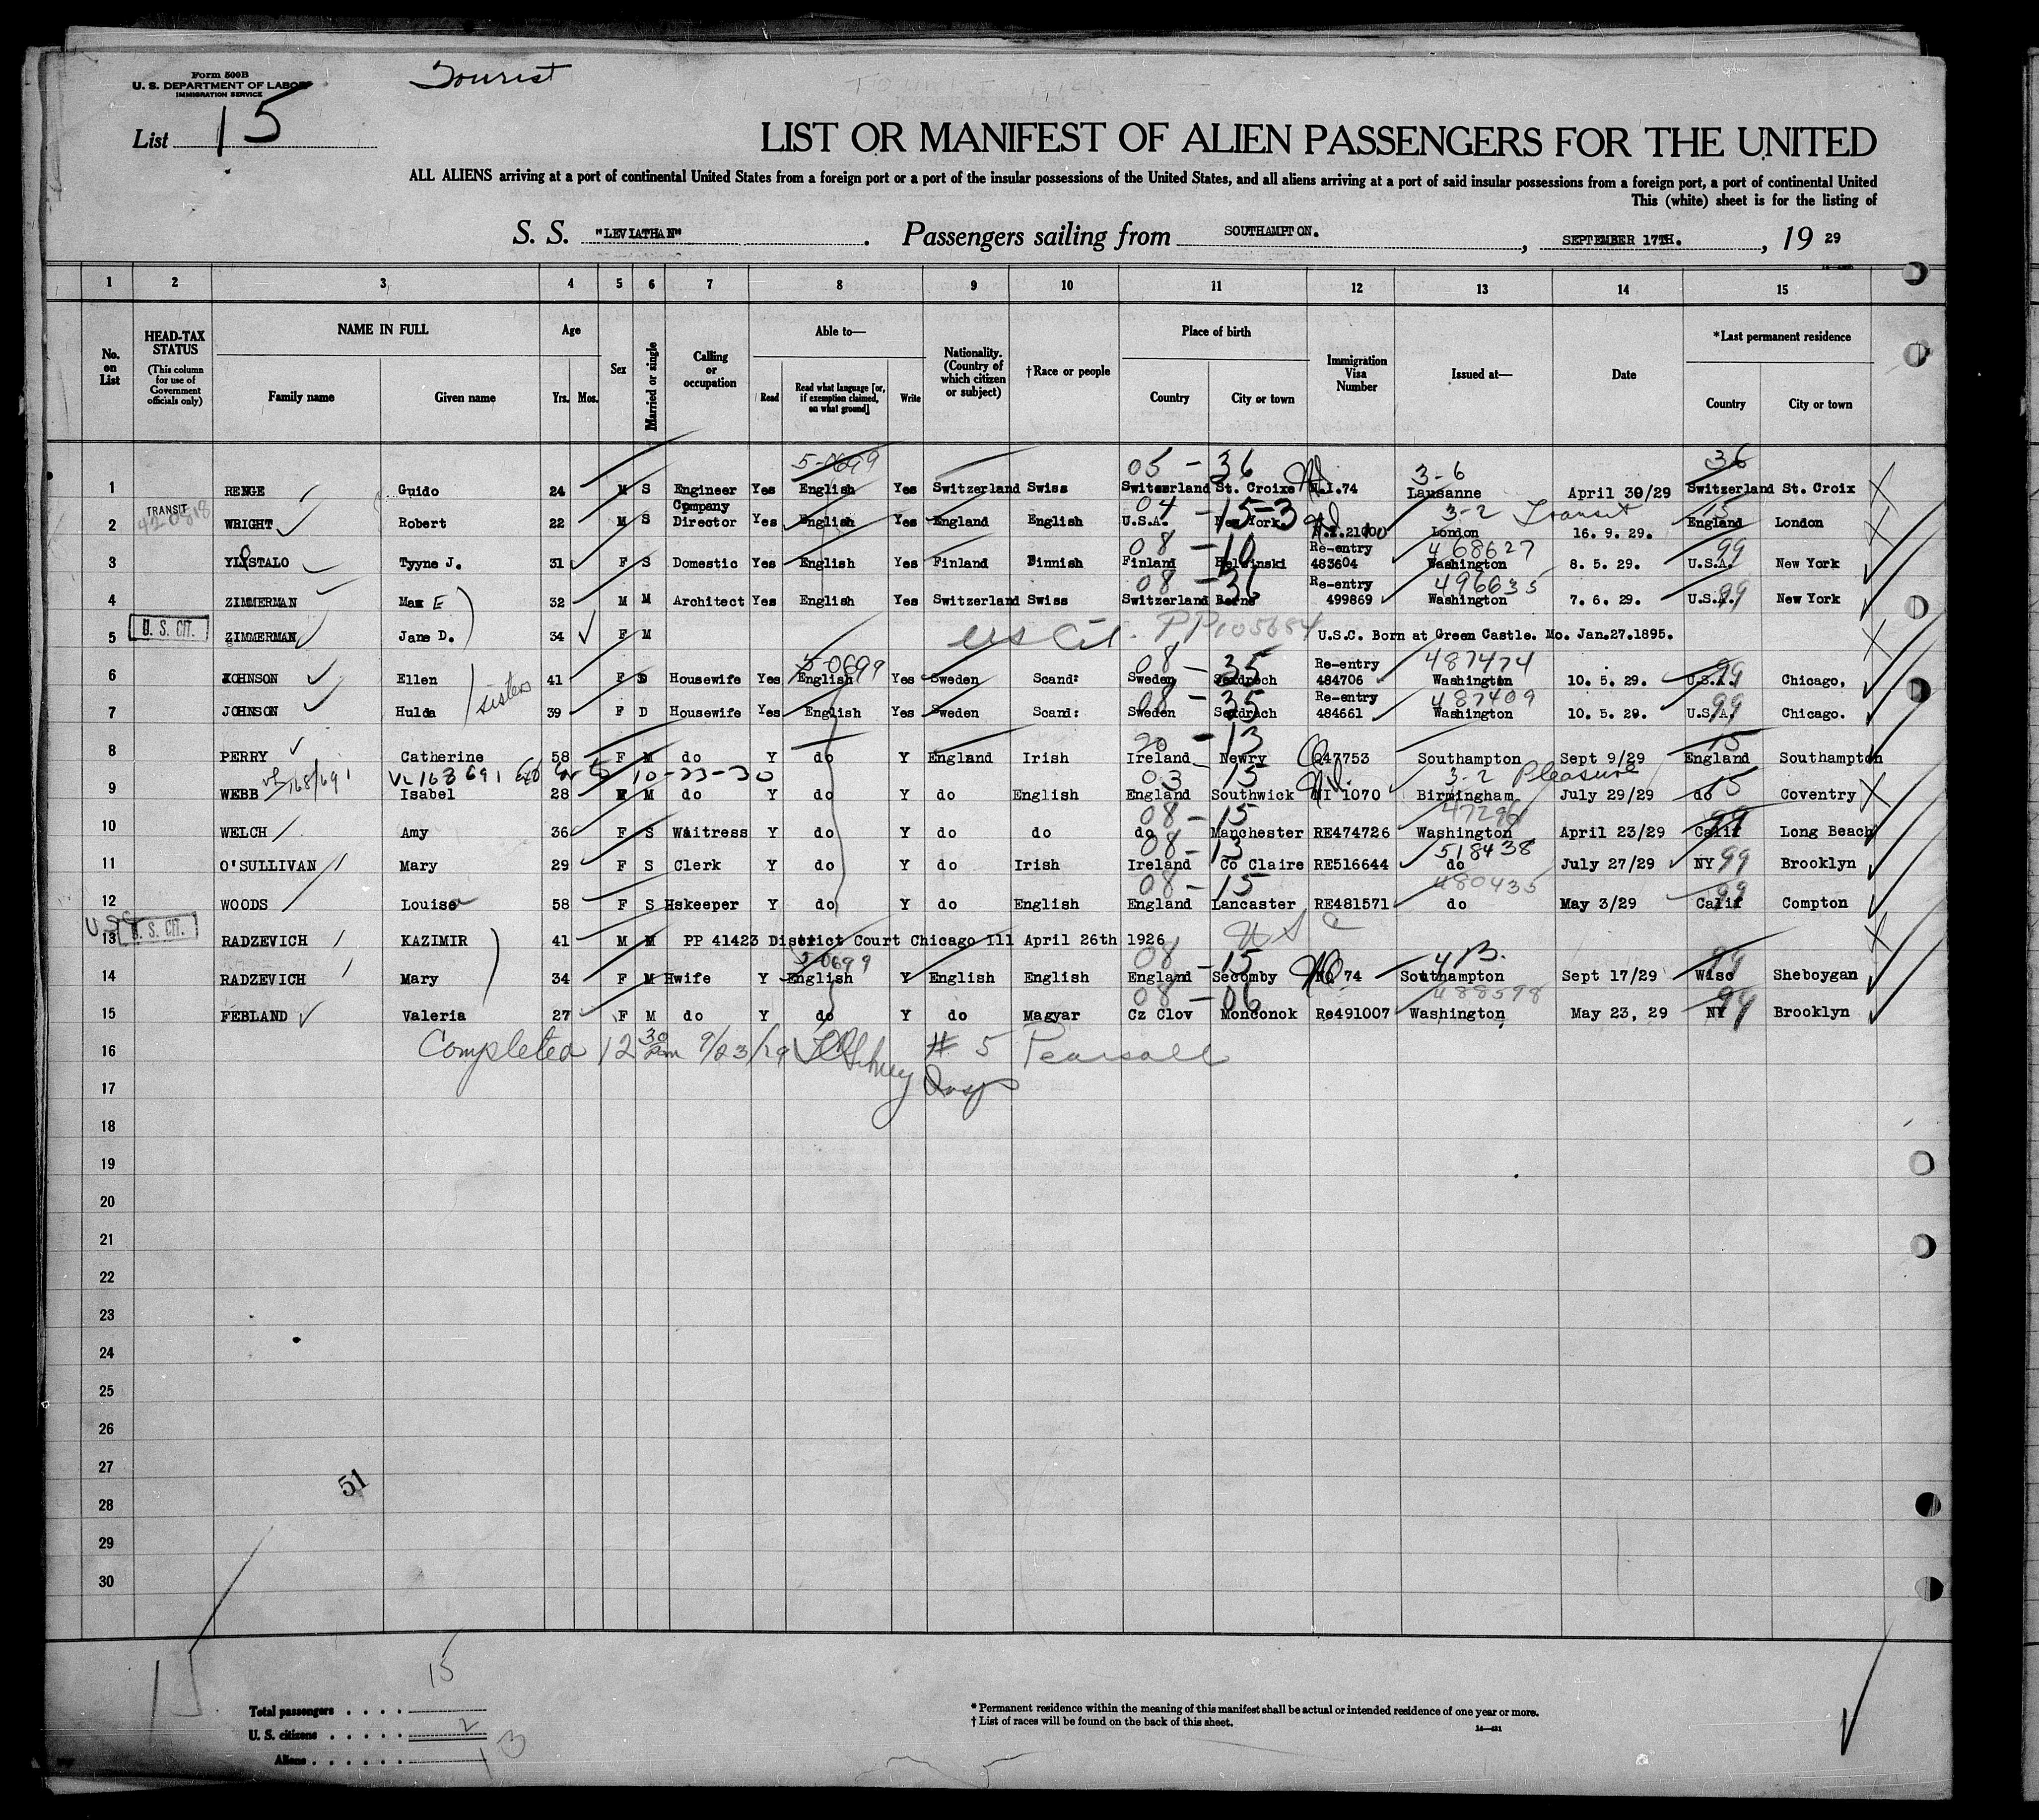 Form 500B
U. S. DEPARTMENT OF LABOR
IMMIGRATION SERVICE
Tourist
List 15
LIST OR MANIFEST OF ALIEN PASSENGERS FOR THE UNITED
ALL ALIENS arriving at a port of continental United States from a foreign port or a port of the insular possessions of the United States, and all aliens arriving at a port of said insular possessions from a foreign port, a port of continental United
This (white) sheet is for the listing of
S. S. "LEVIATHAN" . Passengers sailing from SOUTHAMPTON. , SEPTEMBER 17TH. , 19 29
1 2 3 4 5 6 7 8 9 10 11 12 13 14 15
No. on List
HEAD-TAX STATUS
(This column for use of Government officials only)
NAME IN FULL
Family name Given name
Age
Yrs. Mos.
Sex
Married or single
Calling or occupation
Able to—
Read Read what language [or, if exemption claimed, on what ground] Write
Nationality. (Country of which citizen or subject)
†Race or people
Place of birth
Country City or town
Immigration Visa Number
Issued at—
Date
*Last permanent residence
Country City or town
5-0699 05 - 36 3-6 36
1 RENGE Guido 24 M S Engineer Yes English Yes Switzerland Swiss Switzerland St. Croixe N.I.74 Lausanne April 30/29 Switzerland St. Croix
TRANSIT 04 - 15-3 3-2 Transit 15
2 WRIGHT Robert 22 M S Company Director Yes English Yes England English U.S.A. New York N.I.21000 London 16. 9. 29. England London
08 - 10 468627 99
3 YLOSTALO Tyyne J. 31 F S Domestic Yes English Yes Finland Finnish Finland Helsinski Re-entry 483604 Washington 8. 5. 29. U.S.A. New York
08 - 36 496635 99
4 ZIMMERMAN Max E 32 M M Architect Yes English Yes Switzerland Swiss Switzerland Berne Re-entry 499869 Washington 7. 6. 29. U.S.A. New York
U. S. CIT.
5 ZIMMERMAN Jane D. 34 F M US Cit. PP105684 U.S.C. Born at Green Castle. Mo. Jan.27.1895.
5-0699 08 - 35 487474 99
6 JOHNSON Ellen 41 F D Housewife Yes English Yes Sweden Scand: Sweden Re-entry 484706 Washington 10. 5. 29. U.S.A. Chicago.
sisters
08 - 35 487409 99
7 JOHNSON Hulda 39 F D Housewife Yes English Yes Sweden Scand: Sweden Re-entry 484661 Washington 10. 5. 29. U.S.A. Chicago.
20 - 13 15
8 PERRY Catherine 58 F M do Y do Y England Irish Ireland Newry Q47753 Southampton Sept 9/29 England Southampton
VL 168/691 VL 168691 10-23-30 03 15 3-2 Pleasure 15
9 WEBB Isabel 28 F M do Y do Y do English England Southwick NI 1070 Birmingham July 29/29 do Coventry
08 - 15 99
10 WELCH Amy 36 F S Waitress Y do Y do do do Manchester RE474726 Washington April 23/29 Calif Long Beach
08 - 13 518438 99
11 O'SULLIVAN Mary 29 F S Clerk Y do Y do Irish Ireland Co Claire RE516644 do July 27/29 NY Brooklyn
08 - 15 480435 99
12 WOODS Louisa 58 F S Hskeeper Y do Y do English England Lancaster RE481571 do May 3/29 Calif Compton
U. S. CIT. USC
13 RADZEVICH KAZIMIR 41 M M PP 41423 District Court Chicago Ill April 26th 1926
5-0699 08 - 15 413. 99
14 RADZEVICH Mary 34 F M Hwife Y English Y English English England Secomby NQ 74 Southampton Sept 17/29 Wisc Sheboygan
08 - 06 488598 99
15 FEBLAND Valeria 27 F M do Y do Y do Magyar Cz Clov Monconok Re491007 Washington May 23, 29 NY Brooklyn
16 Completed 12 30 am 9/23/29 # 5 Pearsall
17 Insp
18
19
20
21
22
23
24
25
26
27
28
29
30
51
15
Total passengers . . . . 15
U. S. citizens . . . . . 2
Aliens . . . . . . 13
* Permanent residence within the meaning of this manifest shall be actual or intended residence of one year or more.
† List of races will be found on the back of this sheet.